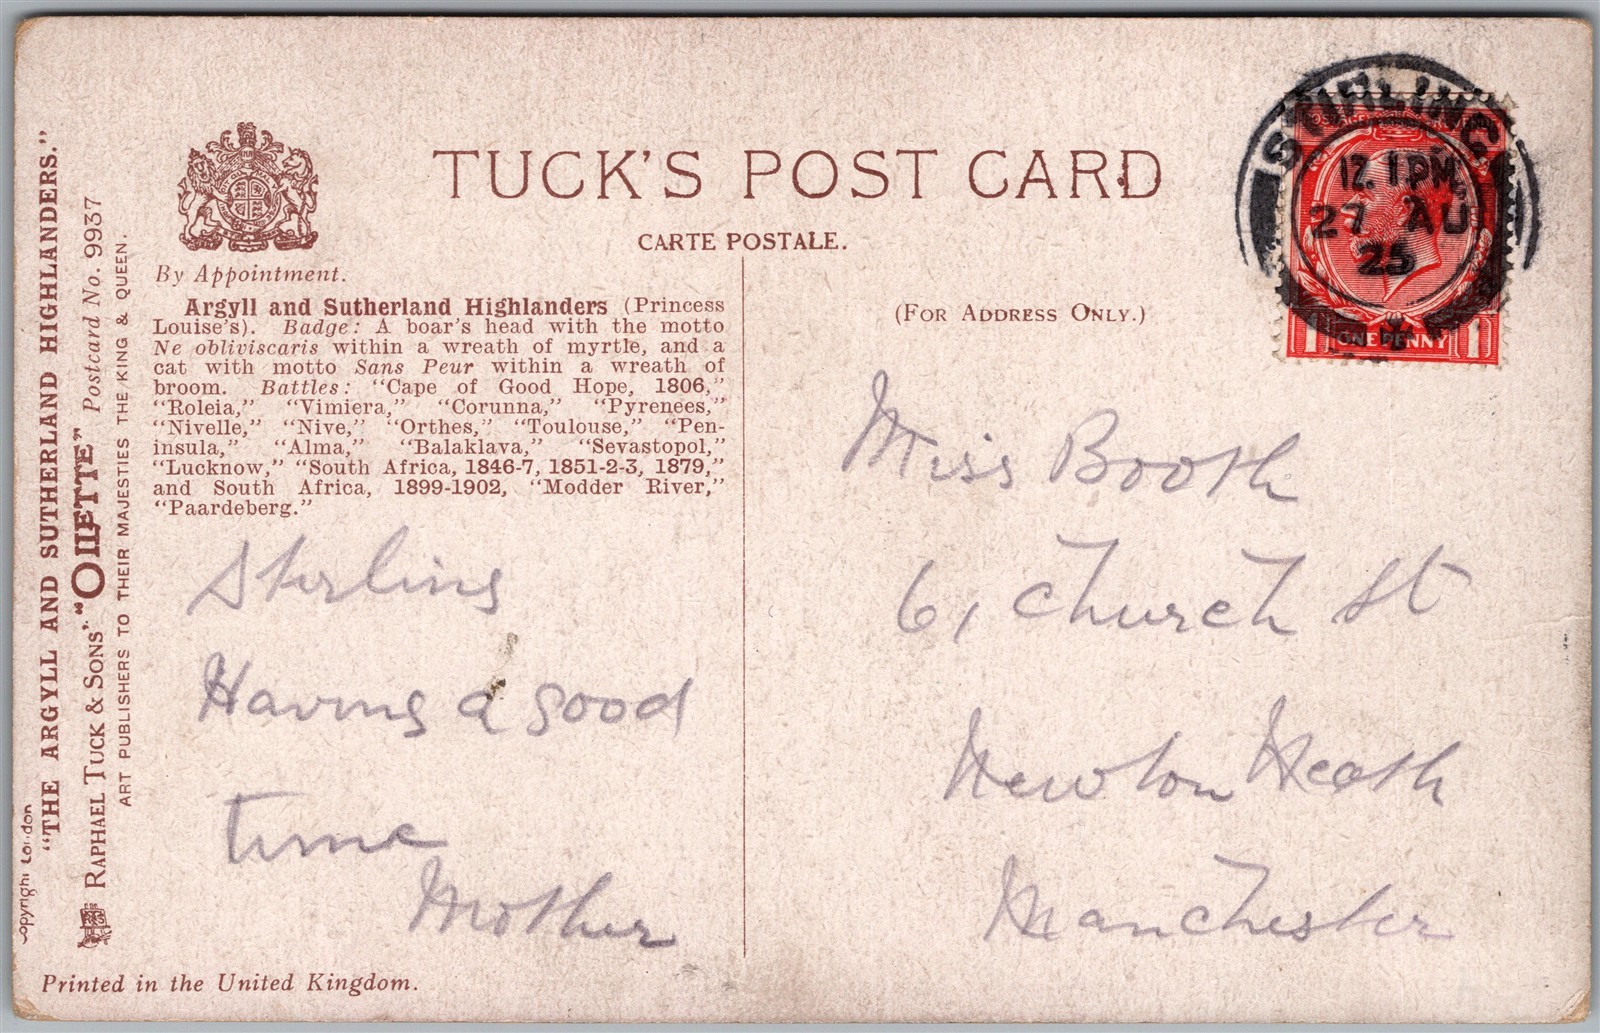 TUCK'S POST CARD
CARTE POSTALE.
By Appointment.
(FOR ADDRESS ONLY.)
Argyll and Sutherland Highlanders (Princess
Louise's). Badge: A boar's head with the motto
Ne obliviscaris within a wreath of myrtle, and a
cat with motto Sans Peur within a wreath of
broom. Battles: "Cape of Good Hope, 1806,"
"Roleia," "Vimiera," "Corunna," "Pyrenees,"
"Nivelle," "Nive," "Orthes," "Toulouse," "Pen-
insula," "Alma," "Balaklava," "Sevastopol,"
"Lucknow," "South Africa, 1846-7, 1851-2-3, 1879,"
and South Africa, 1899-1902, "Modder River,"
"Paardeberg."
Stirling
Having a good
time
Mother
Miss Booth
6, Church St
Newton Heath
Manchester
STIRLING
12. 1 PM
27 AU
25
1 ONE PENNY 1
"THE ARGYLL AND SUTHERLAND HIGHLANDERS."
RAPHAEL TUCK & SONS' "OILETTE" Postcard No. 9937
ART PUBLISHERS TO THEIR MAJESTIES THE KING & QUEEN.
Copyright London
Printed in the United Kingdom.